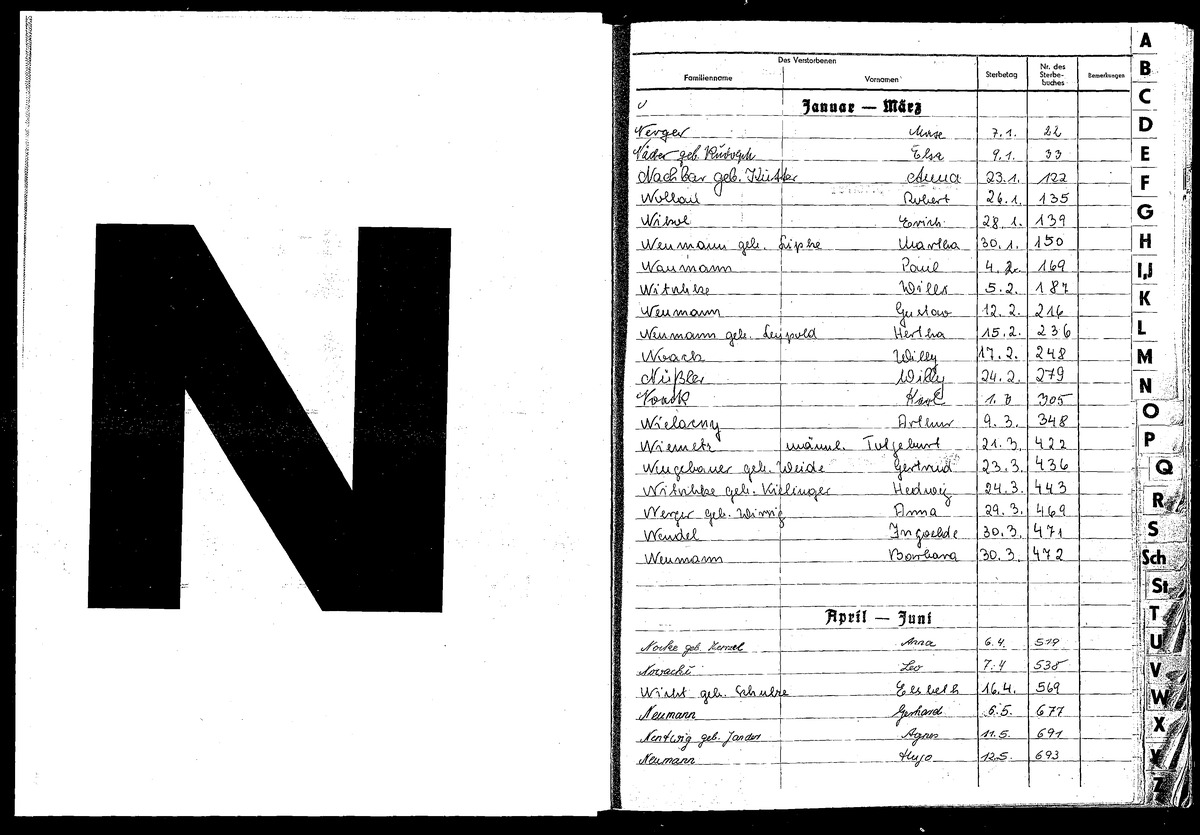 N
Des Verstorbenen
Familienname Vornamen Sterbetag Nr. des Sterbe-buches Bemerkungen
Januar — März
Nerger 7.1. 22
geb. Rudolph Elsa 9.1. 33
Nachbar geb. Anna 23.1. 122
Robert 26.1. 135
Erich 28.1. 139
Neumann geb. Martha 30.1. 150
Naumann Paul 4.2. 169
Nitschke Willi 5.2. 187
Neumann Gustav 12.2. 216
Neumann geb. Leupold Hertha 15.2. 236
Noack Willy 17.2. 248
Nüßler Willy 24.2. 279
Noack Karl 1.3 305
Arthur 9.3. 348
Niemetz männl. Totgeburt 21.3. 422
geb. Weide Gertrud 23.3. 436
Nitschke geb. Kislinger Hedwig 24.3. 443
Nerger geb. Anna 29.3. 469
30.3. 471
Neumann Barbara 30.3. 472
April — Juni
geb. Anna 6.4. 519
Leo 7.4 538
geb. Schulze Elsbeth 16.4. 569
Neumann Gerhard 6.5. 677
Nentwig geb. Jander Agnes 11.5. 691
Neumann Hugo 12.5. 693
A
B
C
D
E
F
G
H
I,J
K
L
M
N
O
P
Q
R
S
Sch
St
T
U
V
W
X
Y
Z